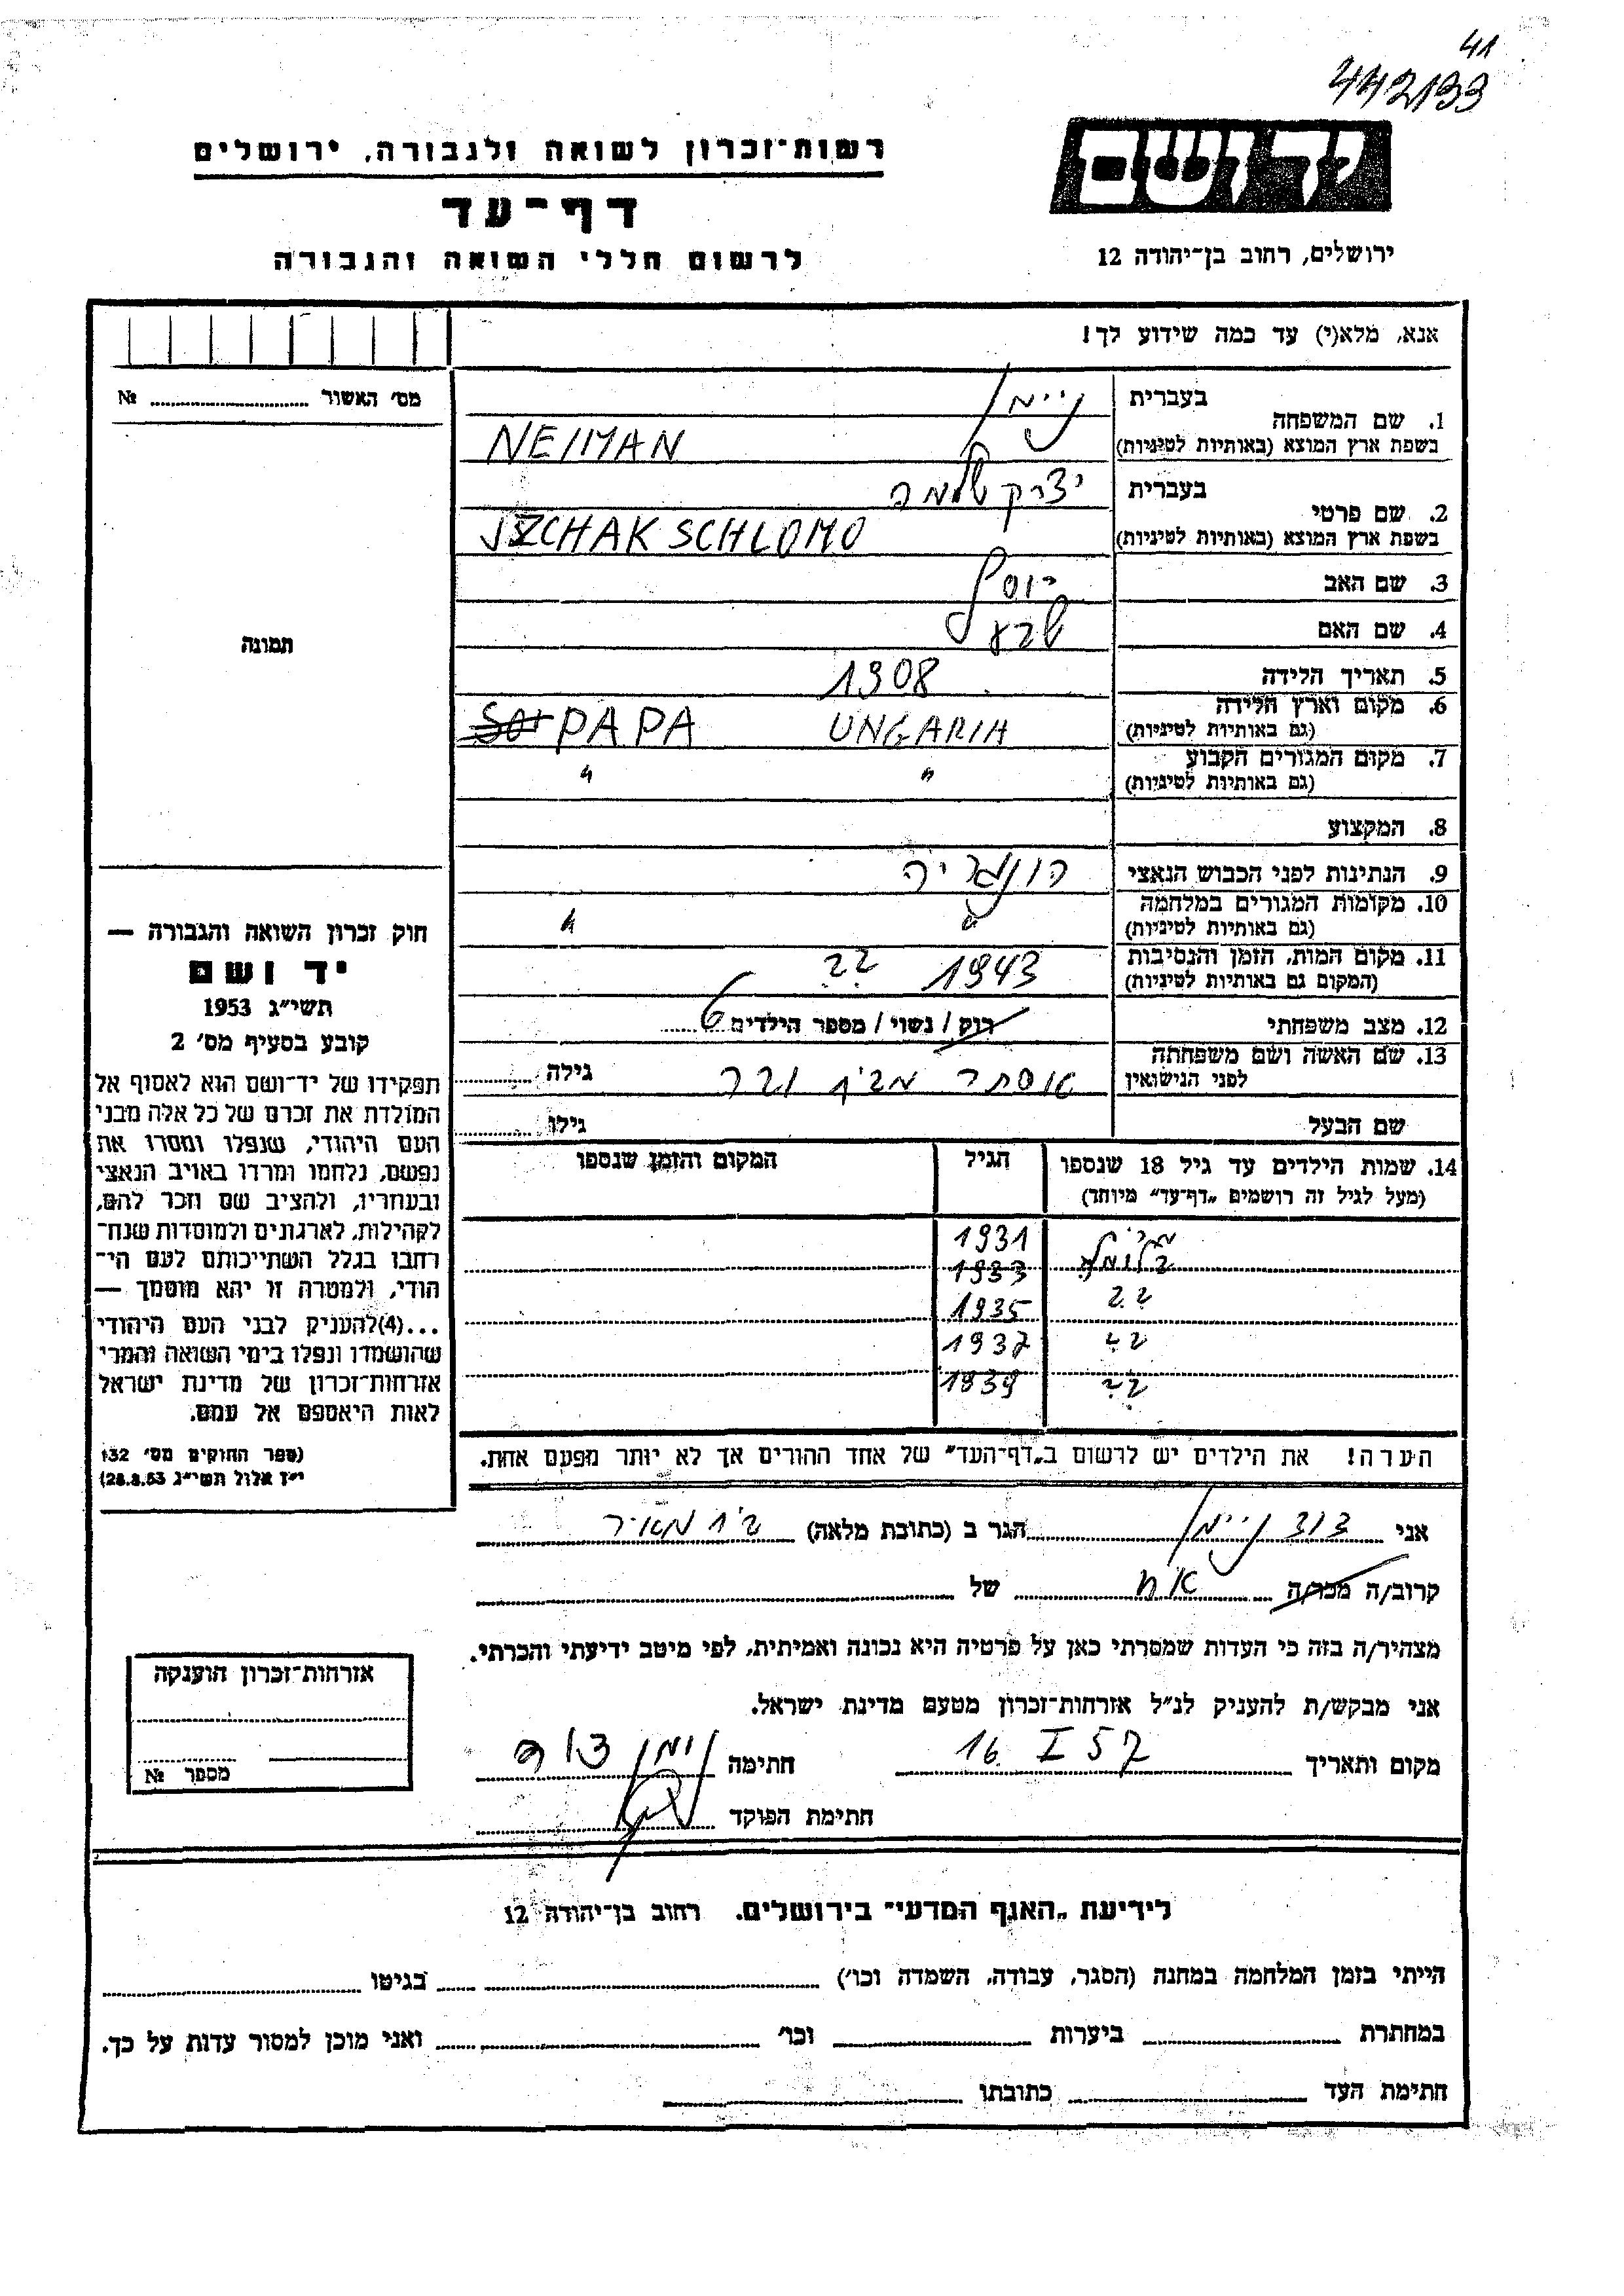 41
442133
יד ושם
רשות־זכרון לשואה ולגבורה, ירושלים
דף־עד
לרשום חללי השואה והגבורה
ירושלים, רחוב בן־יהודה 12
אנא, מלא(י) עד כמה שידוע לך!
מס׳ האשור № 
1. שם המשפחה
בעברית ניימן
בשפת ארץ המוצא (באותיות לטיניות) NEIMAN
2. שם פרטי
בעברית יצחק שלמה
בשפת ארץ המוצא (באותיות לטיניות) JZCHAK SCHLOMO
3. שם האב יוסף
4. שם האם שבע
5. תאריך הלידה 1908
6. מקום וארץ הלידה PAPA UNGARIA
(גם באותיות לטיניות)
7. מקום המגורים הקבוע " "
(גם באותיות לטיניות)
8. המקצוע
9. הנתינות לפני הכבוש הנאצי הונגריה
10. מקומות המגורים במלחמה " "
(גם באותיות לטיניות)
11. מקום המות, הזמן והנסיבות 1943 ??
(המקום גם באותיות לטיניות)
12. מצב משפחתי רוק / נשוי / מספר הילדים 6
13. שם האשה ושם משפחתה
לפני הנישואין אסתר גילה
שם הבעל גילו
תמונה
חוק זכרון השואה והגבורה —
יד ושם
תשי״ג 1953
קובע בסעיף מס׳ 2
תפקידו של יד־ושם הוא לאסוף אל
המולדת את זכרם של כל אלה מבני
העם היהודי, שנפלו ומסרו את
נפשם, נלחמו ומרדו באויב הנאצי
ובעוזריו, ולהציב שם וזכר להם,
לקהילות, לארגונים ולמוסדות שנח־
רחבו בגלל השתייכותם לעם הי־
הודי, ולמטרה זו יהא מוסמך —
...(4)להעניק לבני העם היהודי
שהושמדו ונפלו בימי השואה והמרי
אזרחות־זכרון של מדינת ישראל
לאות היאספם אל עמם.
(ספר החוקים מס׳ 132
י״ז אלול תשי״ג 28.8.53)
14. שמות הילדים עד גיל 18 שנספו הגיל המקום והזמן שנספו
(מעל לגיל זה רושמים „דף־עד״ מיוחד)
1931
1933
?? 1935
?? 1937
?? 1939
הערה! את הילדים יש לרשום ב„דף־העד״ של אחד ההורים אך לא יותר מפעם אחת.
אני ניימן הגר ב (כתובת מלאה) מאיר
קרוב/ה מכר/ה אח של
מצהיר/ה בזה כי העדות שמסרתי כאן על פרטיה היא נכונה ואמיתית, לפי מיטב ידיעתי והכרתי.
אני מבקש/ת להעניק לנ״ל אזרחות־זכרון מטעם מדינת ישראל.
מקום ותאריך 16 I 57 חתימה
חתימת הפוקד
אזרחות־זכרון הוענקה
מספר №
לידיעת „האגף המדעי״ בירושלים, רחוב בן־יהודה 12
הייתי בזמן המלחמה במחנה (הסגר, עבודה, השמדה וכו׳) בגיטו
במחתרת ביערות וכו׳ ואני מוכן למסור עדות על כך.
חתימת העד כתובתו